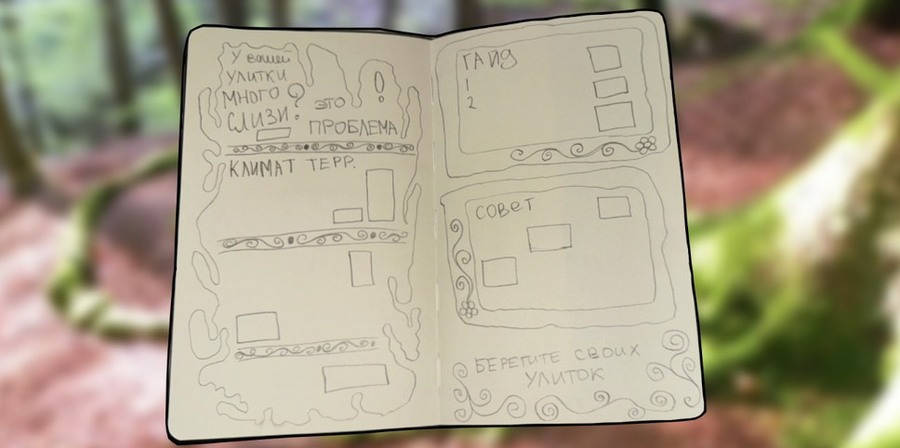 У вашей
УЛИТКИ
МНОГО
СЛИЗИ?
ЭТО
ПРОБЛЕМА!
КЛИМАТ ТЕРР.
ГАЙД
1
2
СОВЕТ
БЕРЕГИТЕ СВОИХ
УЛИТОК